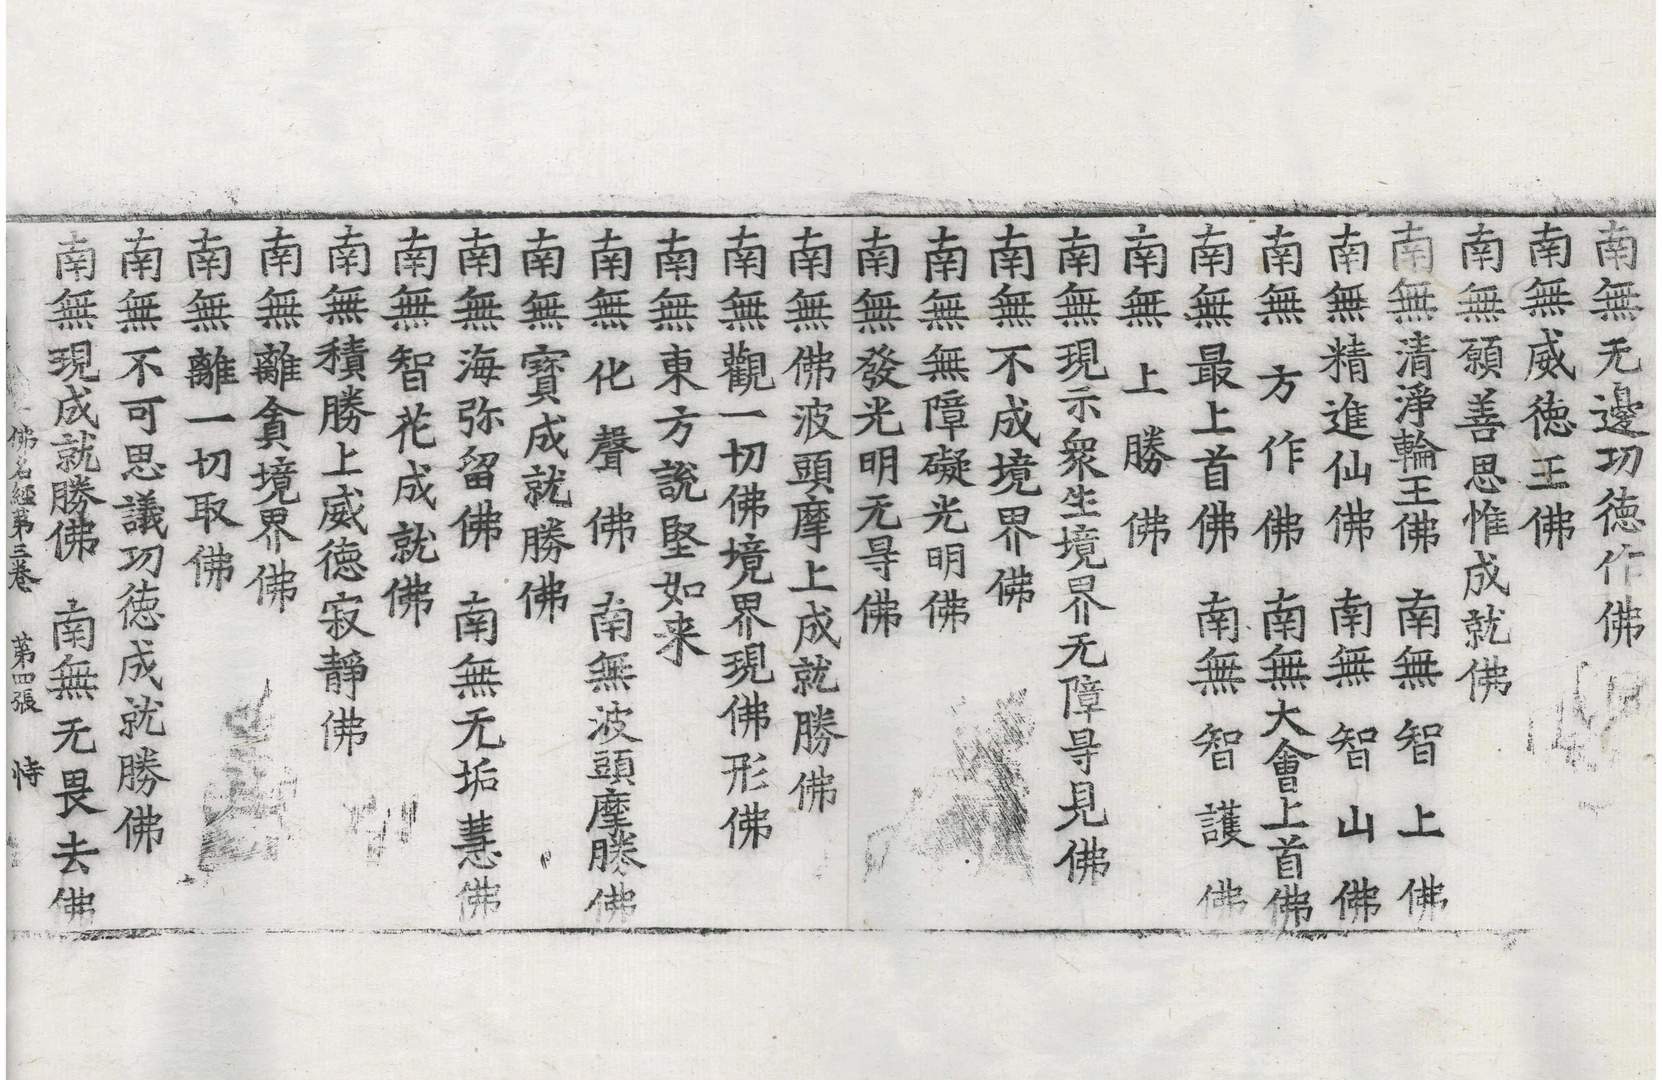 南無无邊功徳作佛
南無威徳王佛
南無願善思惟成就佛
南無清淨輪王佛　南無智上佛
南無精進仙佛　南無智山佛
南無方作佛　南無大會上首佛
南無最上首佛　南無智護佛
南無上勝佛
南無現示衆生境界无障㝵見佛
南無不成境界佛
南無無障礙光明佛
南無發光明无㝵佛
南無佛波頭摩上成就勝佛
南無觀一切佛境界現佛形佛
南無東方說堅如来
南無化聲佛　南無波頭摩勝佛
南無寳成就勝佛
南無海弥留佛　南無无垢慧佛
南無智花成就佛
南無積勝上威德寂靜佛
南無離貪境界佛
南無離一切取佛
南無不可思議功徳成就勝佛
南無現成就勝佛　南無无畏去佛
佛名經第三卷　第四張　恃